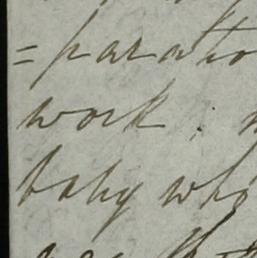 = paratio
work : n
baby who